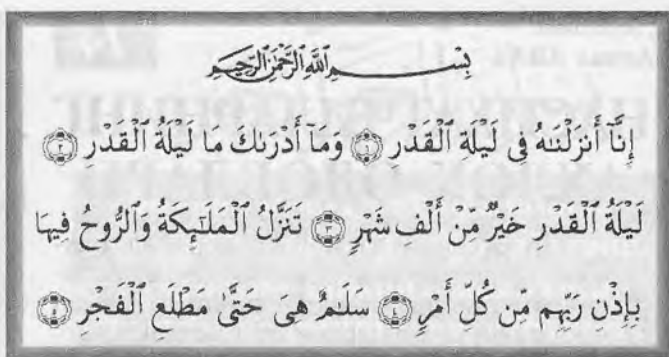 بِسْمِ ٱللَّهِ ٱلرَّحْمَٰنِ ٱلرَّحِيمِ
إِنَّآ أَنزَلْنَٰهُ فِى لَيْلَةِ ٱلْقَدْرِ ۝١ وَمَآ أَدْرَىٰكَ مَا لَيْلَةُ ٱلْقَدْرِ ۝٢
لَيْلَةُ ٱلْقَدْرِ خَيْرٌ مِّنْ أَلْفِ شَهْرٍ ۝٣ تَنَزَّلُ ٱلْمَلَٰٓئِكَةُ وَٱلرُّوحُ فِيهَا
بِإِذْنِ رَبِّهِم مِّن كُلِّ أَمْرٍ ۝٤ سَلَٰمٌ هِىَ حَتَّىٰ مَطْلَعِ ٱلْفَجْرِ ۝٥